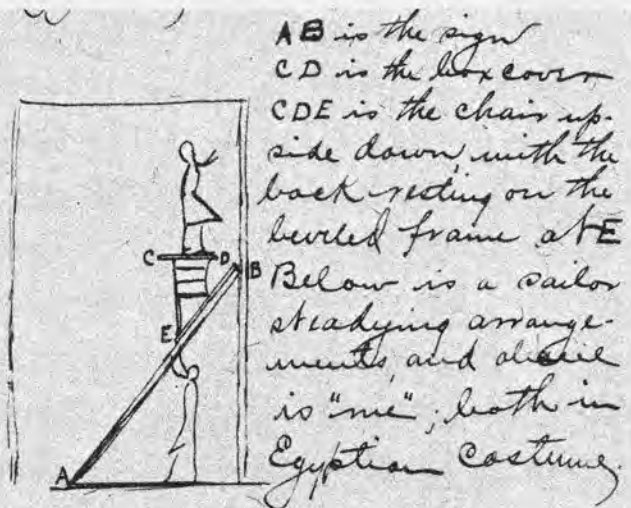 AB is the sign
CD is the box cover
CDE is the chair up-
side down, with the
back resting on the
beveled frame at E
Below is a sailor
steadying arrange-
ments, and above
is "me"; both in
Egyptian costume.
C D B
E
A